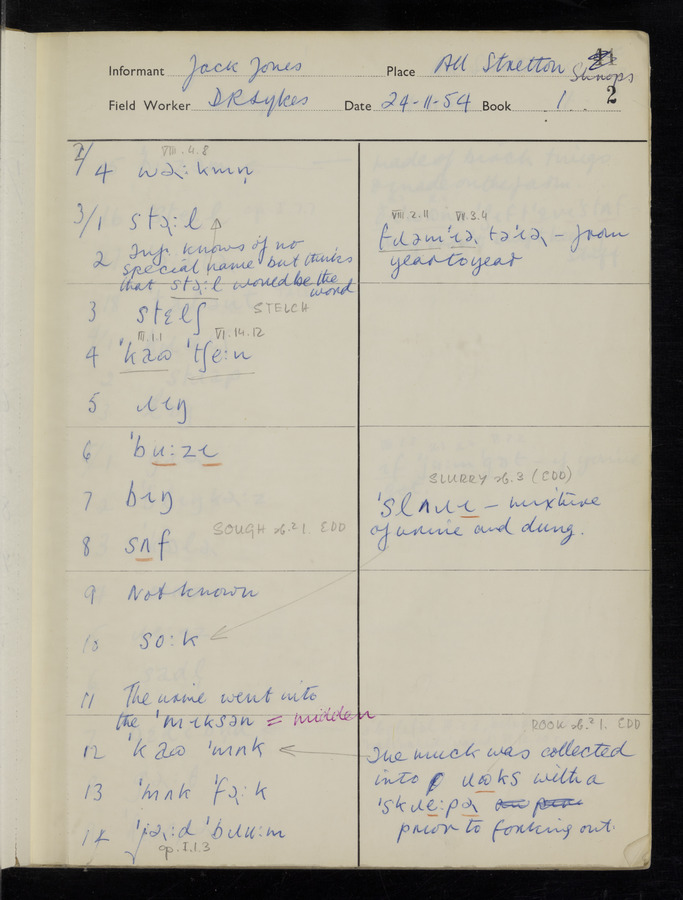 Informant Jack Jones Place All Stretton Shrops
Field Worker D R Sykes Date 24-11-54 Book 1 2
VIII.4.8
2/4 wə̢:kmn̩
3/1 stə̢:l
2 Inf. knows of no
special name but thinks
that stə̢:l would be the
word
VIII.2.11 VII.3.4
fɹəmˈiə̢ təˈiə̢ – from
year to year
3 stɛlʃ STELCH
III.1.1 VI.14.12
4 ˈkaʊ ˈtʃe:n
5 ɹɪŋ
6 ˈbu:zɪ
7 bɪŋ
SLURRY sb.3 (EDD)
ˈslʌɹɪ – mixture
of urine and dung.
SOUGH sb.² 1. EDD
8 sʌf
9 Not known
10 so:k
11 The urine went into
the ˈmɪksən = midden
ROOK sb.² 1. EDD
12 ˈkaʊ ˈmʌk
The muck was collected
into ɹʊks with a
ˈskɹe:pə̢
prior to forking out.
13 ˈmʌk ˈfə̢:k
14 ˈjə̢:d ˈbɹu:m
cp. I.1.3